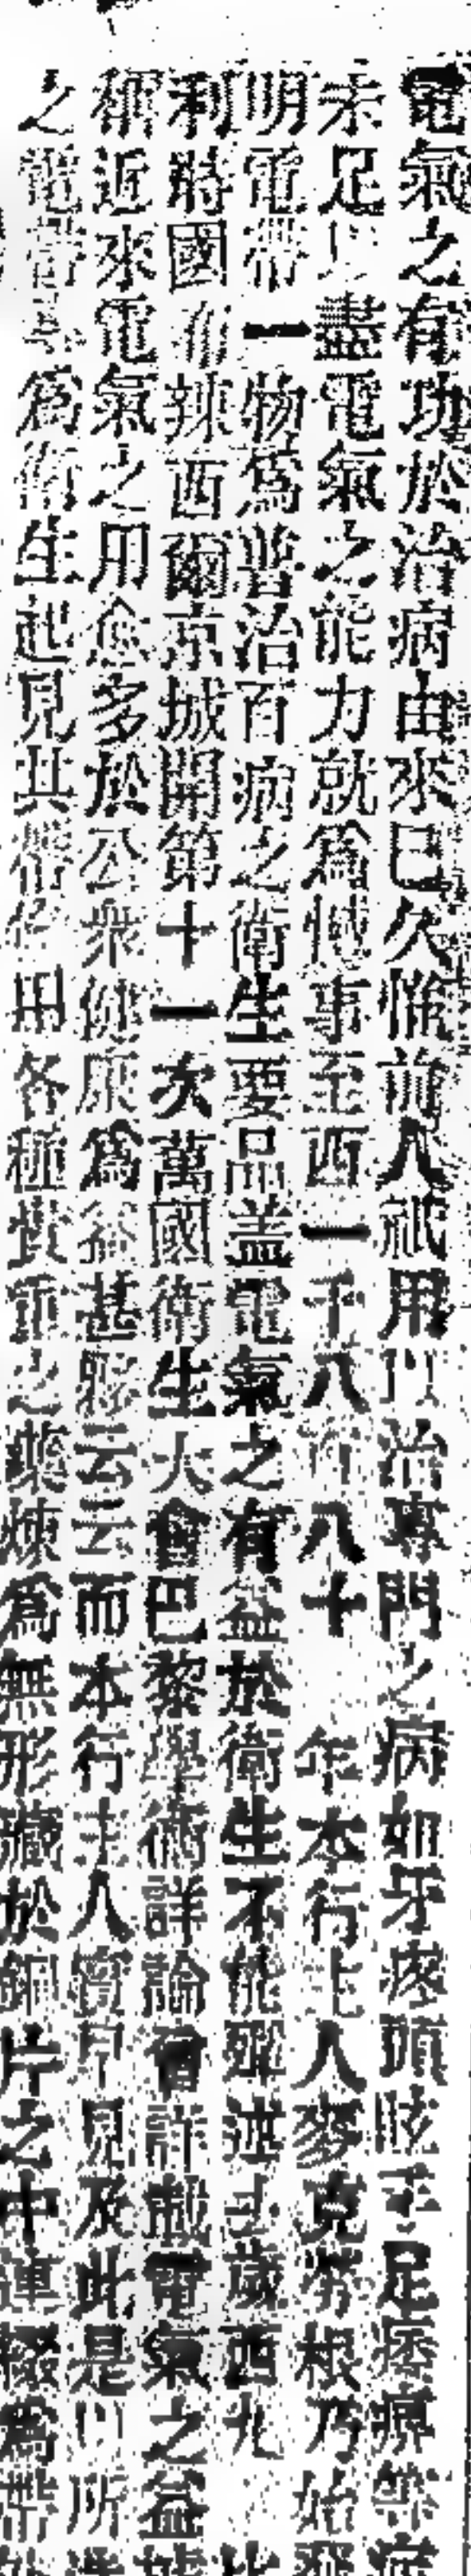 電氣之有功於治病由來已久惟前人祇用以治專門之病如牙疼頭眩手足痿痹等症
未足以盡電氣之能力就為憾事至西一千八百八十 年本行主人麥克勞根乃始發
明電帶一物為普治百病之衛生要品盖電氣之有益於衛生不能殫述去歲西九 比
利時國布辣西爾京城開第十一次萬國衛生大會巴黎學術詳論首許載電氣之益
稱近來電氣之用愈多於公衆健康為益甚夥云云而本行主人實早見及此是以所
之電帶專為衛生起見其帶係用各種貴重之藥煉為無形藏於銅片之中連綴為帶